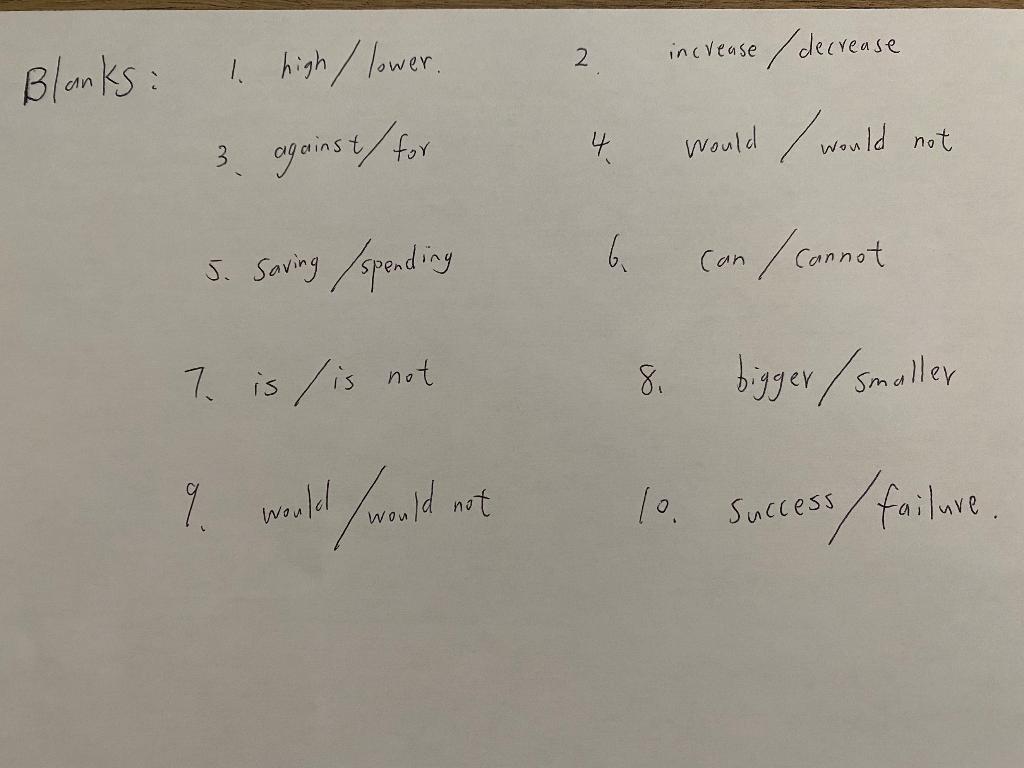 Blanks: 1. high / lower. 2. increase / decrease
3. against / for 4. would / would not
5. saving / spending 6. can / cannot
7. is / is not 8. bigger / smaller
9. would / would not 10. success / failure.